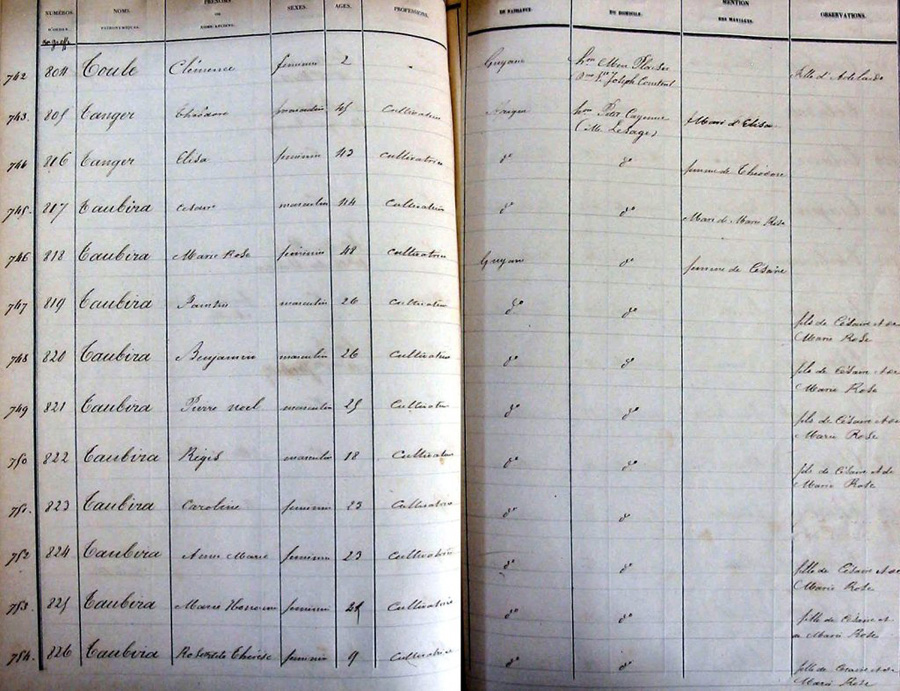 NUMÉROS D'ORDRE. NOMS PATRONYMIQUES. PRÉNOMS OU NOMS ANCIENS. SEXES. AGES. PROFESSIONS. DE NAISSANCE. DU DOMICILE. MENTION DES MARIAGES. OBSERVATIONS.
742 804 Toule Clémence féminin 2 Guyane hon Mme
Dme Joseph fille d'Adélaïde
743. 805 Tanger Théodore masculin 45 cultivateur hon Cayenne Mari d'Elisa
(M. Lesage)
744 816 Tanger Elisa féminin 43 cultivatrice do do femme de Théodore
745. 817 Taubira Césaire masculin 44 cultivateur do do Mari de Marie Rose
746 818 Taubira Marie Rose féminin 48 cultivatrice Guyane do femme de Césaire
747 819 Taubira masculin 26 cultivateur do do fils de Césaire et de
Marie Rose
748 820 Taubira Benjamin masculin 26 cultivateur do do fils de Césaire et de
Marie Rose
749 821 Taubira Pierre noel masculin 25 cultivateur do do fils de Césaire et de
Marie Rose
750 822 Taubira Régis masculin 18 cultivateur do do fils de Césaire et de
Marie Rose
751. 823 Taubira Caroline féminin 23 cultivatrice do do
752 824 Taubira Anne Marie féminin 23 cultivatrice do do fille de Césaire et de
Marie Rose
753. 825 Taubira Marie féminin 21 cultivatrice do do fille de Césaire et
de Marie Rose
754. 826 Taubira Thérèse féminin 9 cultivatrice do do fille de Césaire et de
Marie Rose